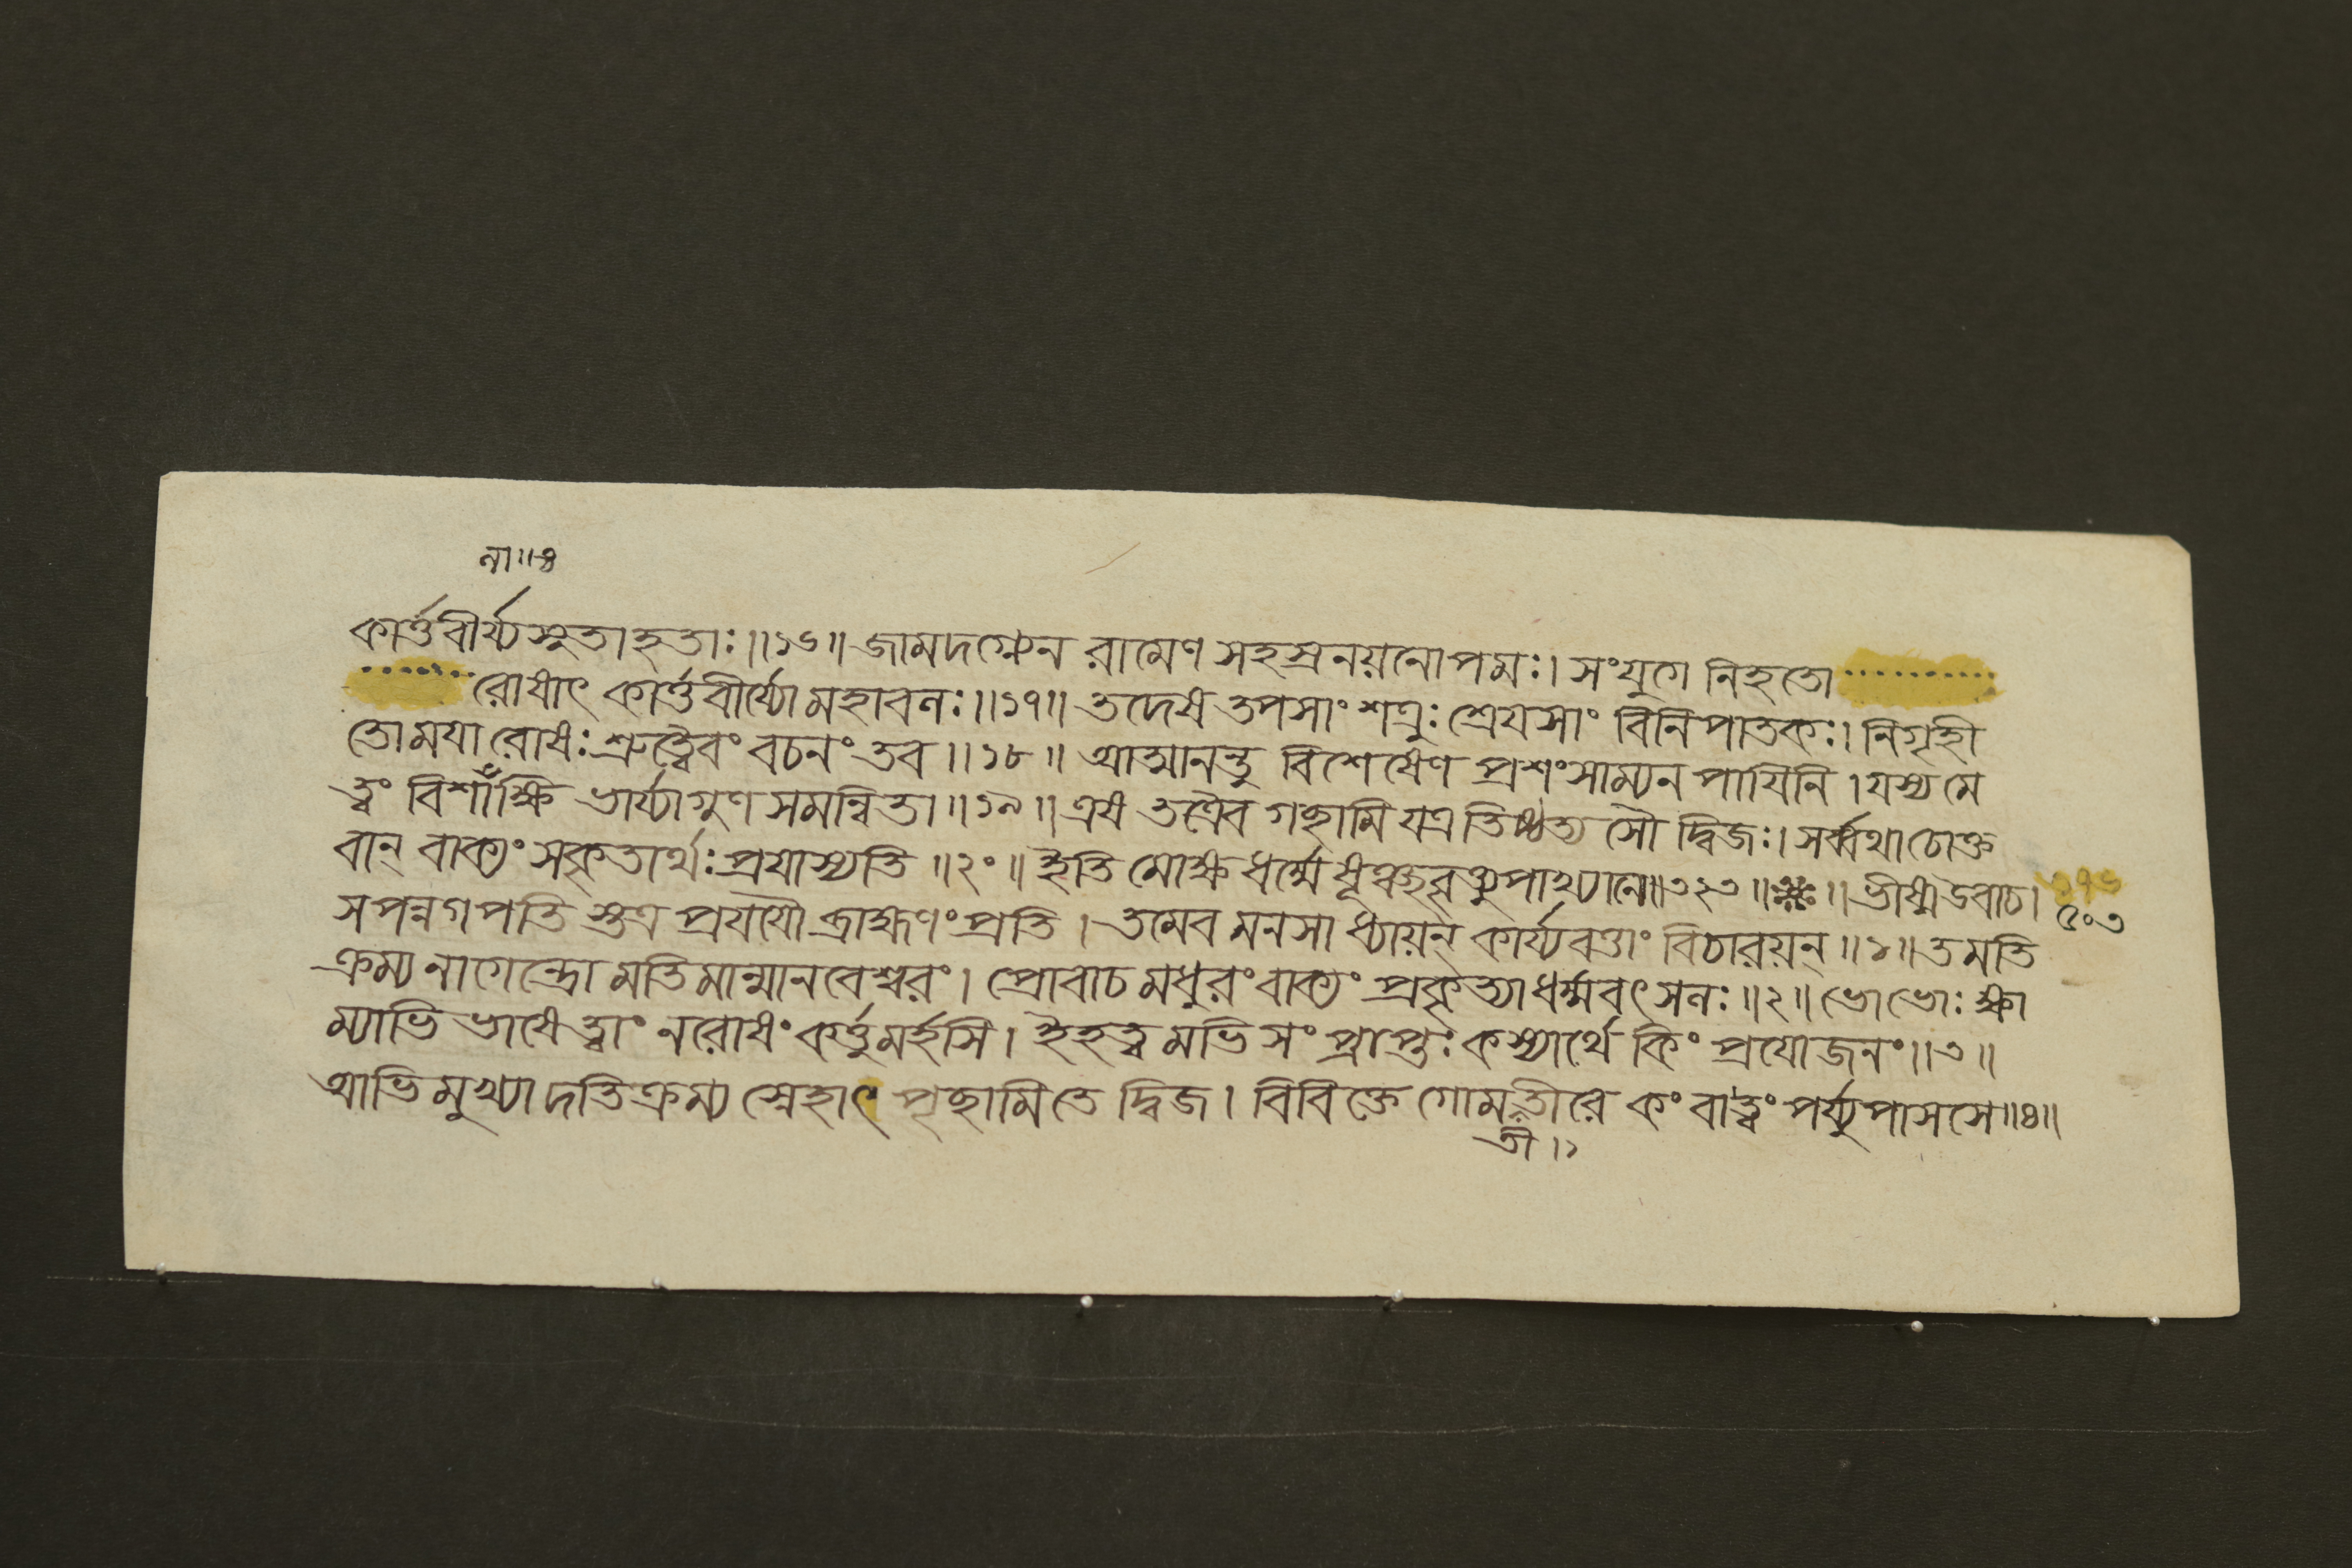 না॥৪
কার্ত্তবীর্য্যসুতাহতাঃ॥১৬॥ জামদগ্ন্যেন রামেণ সহস্রনয়নোপমঃ। সংযুগে নিহতো ..........
........ রোষাৎ কার্ত্তবীর্য্যো মহাবলঃ॥১৭॥ তদেষ তপসাং শত্রুঃ শ্রেয়সাং বিনিপাতকঃ। নিগৃহী
তো ময়া রোষঃ শ্রুত্বৈবং বচনং তব॥১৮॥ আত্মানন্তু বিশেষেণ প্রশংসাম্যনপায়িনি। যস্য মে
ত্বং বিশালাক্ষি ভার্য্যা গুণসমন্বিতা॥১৯॥ এষ তত্রৈব গচ্ছামি যত্র তিষ্ঠত্যসৌ দ্বিজঃ। সর্ব্বথা চোক্ত
বান্ বাক্যং সকৃতার্থঃ প্রয়াস্যতি॥২০॥ ইতি মোক্ষধর্ম্মে উপাখ্যানে॥৩২৩॥ ॥ ভীষ্ম উবাচ।
৫০৩
স পন্নগপতিস্তত্র প্রযযৌ ব্রাহ্মণং প্রতি। তমেব মনসা ধ্যায়ন্ কার্য্যবত্তাং বিচারয়ন্॥১॥ তমতি
ক্রম্য নাগেন্দ্রো মতিমান্মানবেশ্বরং। প্রোবাচ মধুরং বাক্যং প্রকৃত্যা ধর্ম্মবৎসলঃ॥২॥ ভো ভোঃ ক্ষা
ম্যাভিভাষে ত্বাং ন রোষং কর্ত্তুমর্হসি। ইহ ত্বমভিসংপ্রাপ্তঃ কস্যার্থে কিং প্রয়োজনং॥৩॥
আভিমুখ্যাদতিক্রম্য স্নেহাৎ পৃচ্ছামি তে দ্বিজ। বিবিক্তে গোমতীরে কং বা ত্বং পর্য্যুপাসসে॥৪॥
তী।১